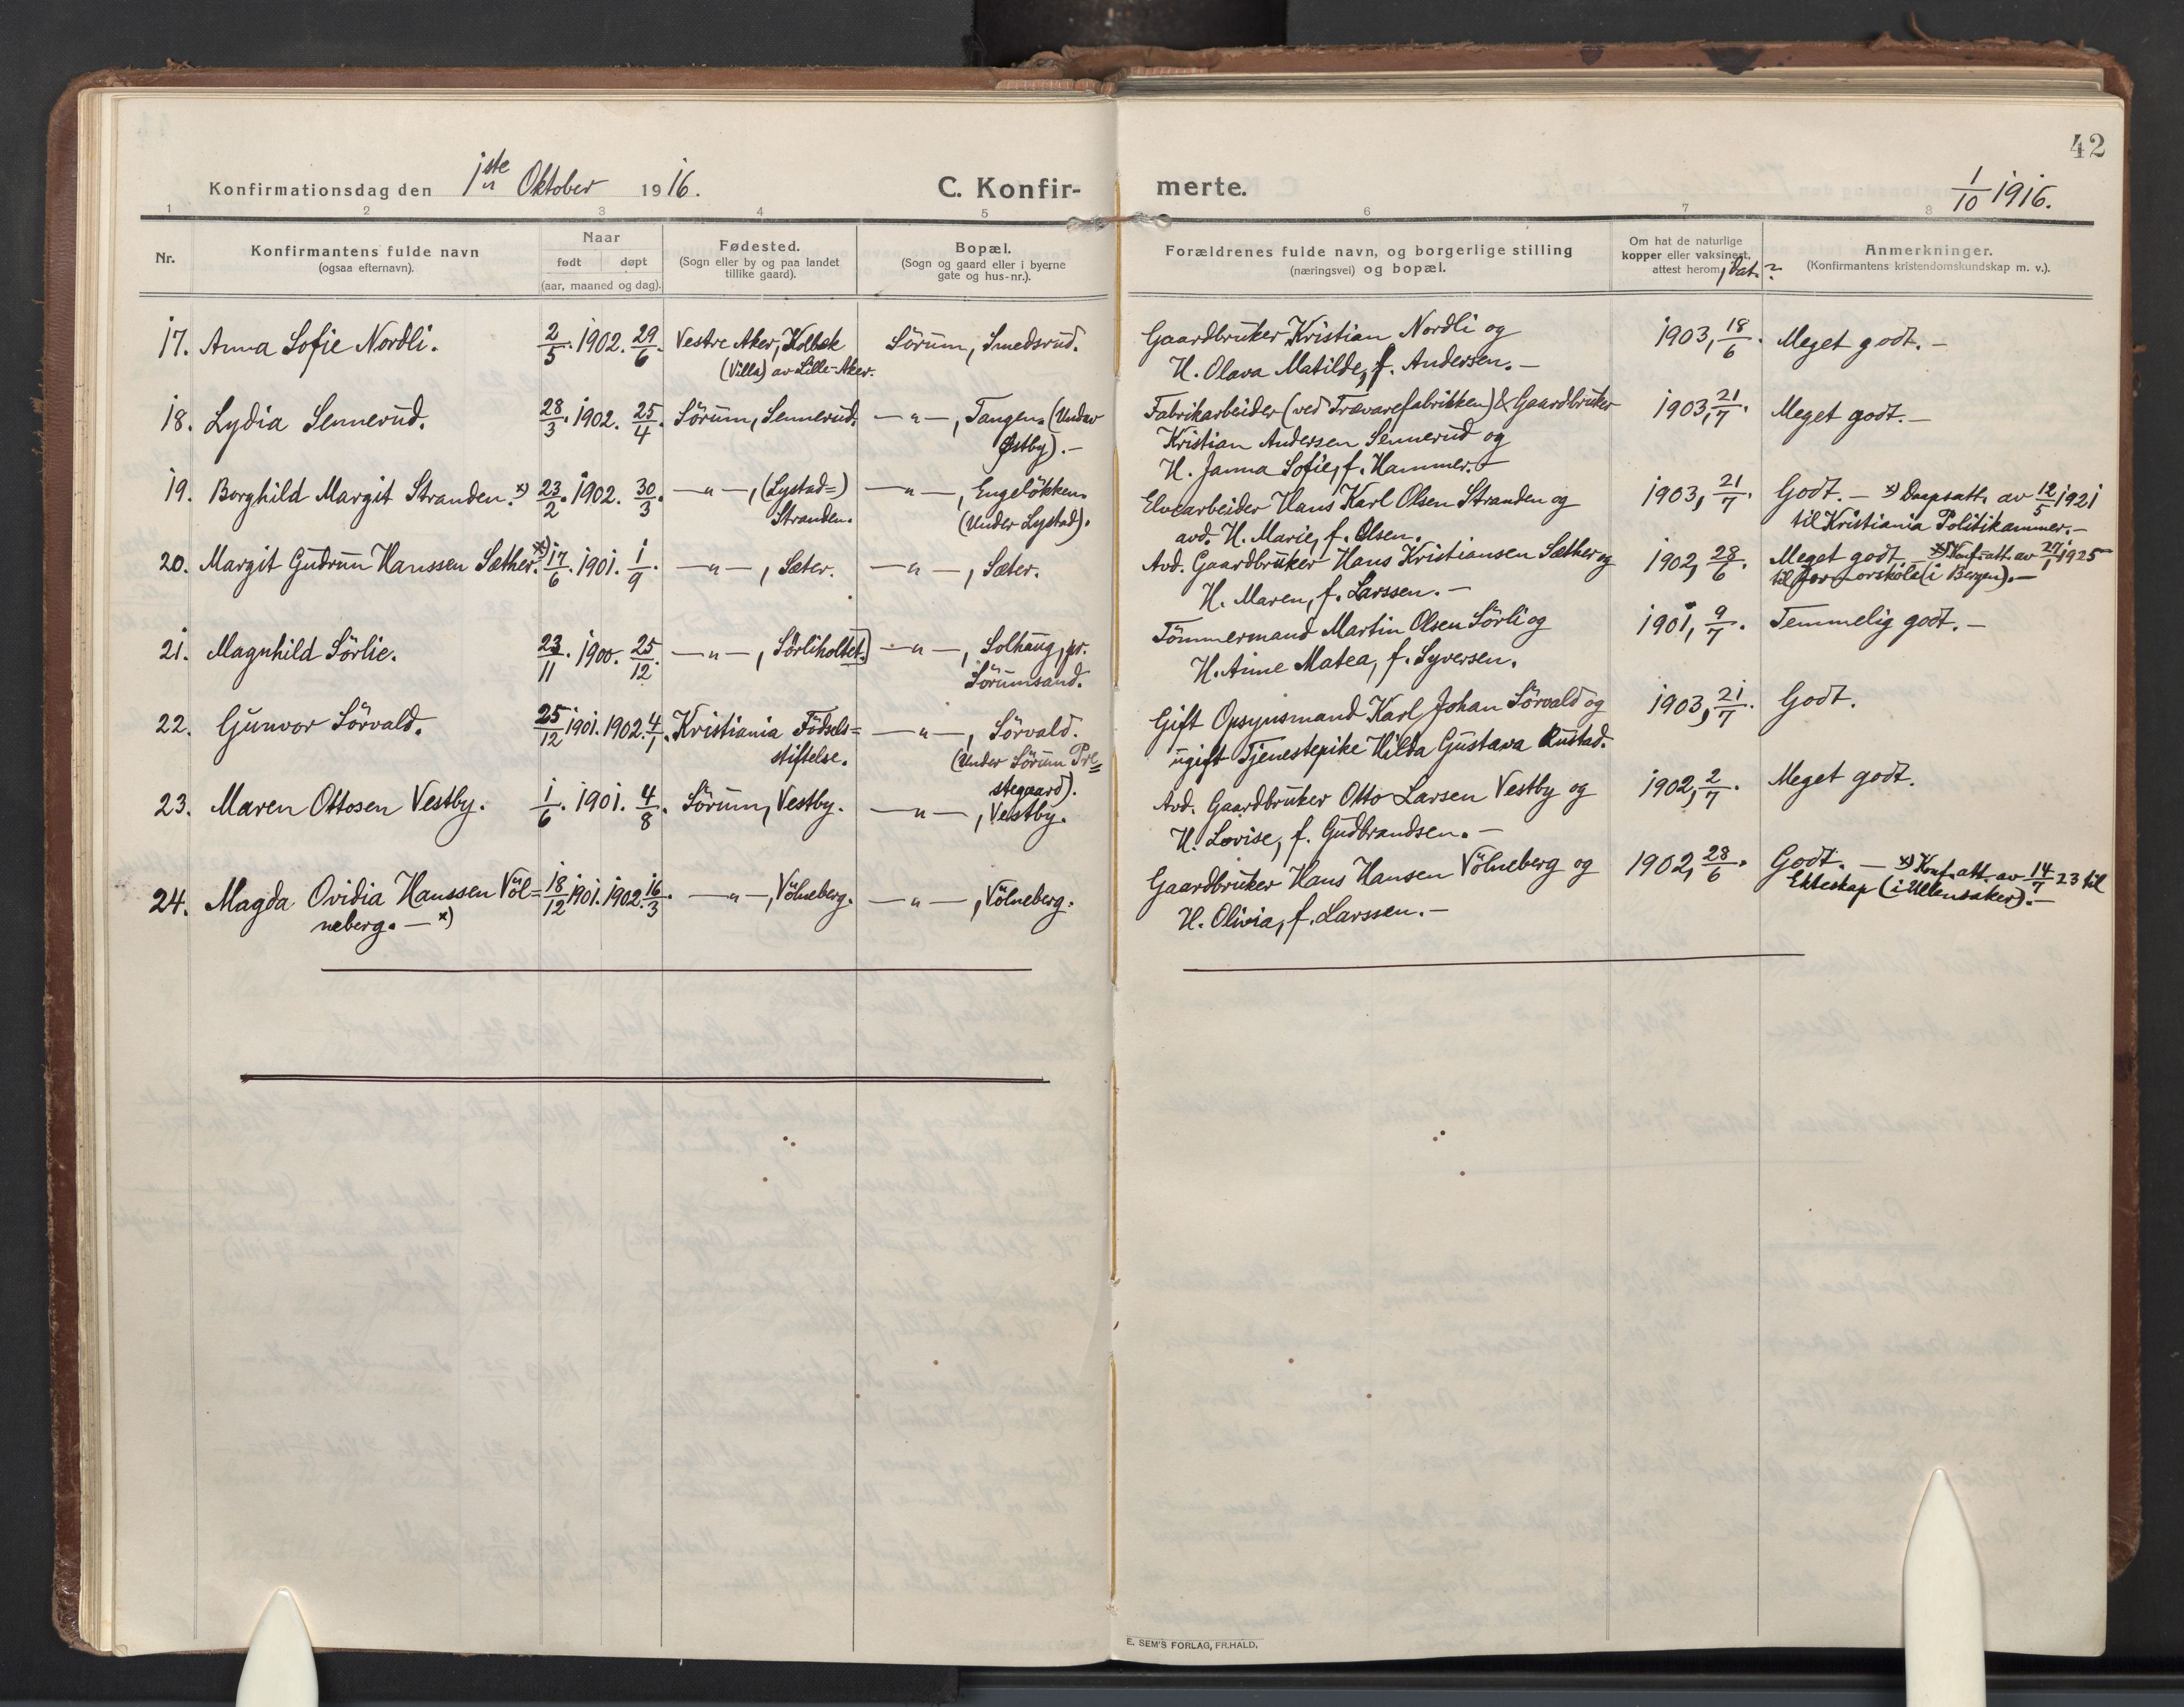 42
Konfirmationsdag den 1ste Oktober 1916.
C. Konfirmerte.
1/10 1916.
1 2 3 4 5 6 7 8
Nr.
Konfirmantens fulde navn
(ogsaa efternavn).
Naar
født døpt
(aar, maaned og dag).
Fødested.
(Sogn eller by og paa landet
tillike gaard).
Bopæl.
(Sogn og gaard eller i byerne
gate og hus-nr.).
Forældrenes fulde navn, og borgerlige stilling
(næringsvei) og bopæl.
Om hat de naturlige
kopper eller vaksinert,
attest herom, Dat.?
Anmerkninger.
(Konfirmantens kristendomskundskap m. v.).
17. Anna Sofie Nordli. 2/5. 1902. 29/6. Vestre Aker, Kolbæk Sörum, Smedsrud.
(Villa) av Lille-Aker.
Gaardbruker Kristian Nordli og 1903, 18/6. Meget godt. —
H. Olava Matilde, f. Andersen. —
18. Lydia Sennerud. 28/3. 1902. 25/4. Sörum, Sennerud. — " —, Tangen. (Under
Østby). —
Fabrikarbeider (ved Trævarefabrikken) & Gaardbruker 1903, 21/7. Meget godt. —
Kristian Andersen Sennerud og
H. Janna Sofie, f. Hammer. —
19. Borghild Margit Stranden. x) 23/2. 1902. 30/3. — " —, (Lystad=) — " —, Engelökken.
Stranden. (Under Lystad).
Elvearbeider Hans Karl Olsen Stranden og 1903, 21/7. Godt. — x) Daapsatt. av 12/5 1921
avd. H. Marie, f. Olsen. til Kristiania Politikammer. —
20. Margit Gudrun Hanssen Sæther. x) 17/6. 1901. 1/9. — " —, Sæter. — " —, Sæter.
Avd. Gaardbruker Hans Kristiansen Sæther og 1902, 28/6. Meget godt. x) Konf.att. av 27/1 1925
H. Maren, f. Larssen. — til Jormorskole (i Bergen). —
21. Magnhild Sörlie. 23/11. 1900. 25/12. — " —, Sörliholtet.) — " —, Solhaug, pr.
Sörumsand.
Tömmermand Martin Olsen Sörli og 1901, 9/7. Temmelig godt. —
H. Anne Matea, f. Syversen.
22. Gunvor Sörvald. 25/12 1901. 1902. 4/1. Kristiania Födsels= — " —, Sörvald.
stiftelse. (Under Sörum Pre=
stegaard).
Gift Opsynsmand Karl Johan Sörvald og 1903, 21/7. Godt.
ugift Tjenestepike Hilda Gustava Rustad.
23. Maren Ottosen Vestby. 1/6. 1901. 4/8. Sörum, Vestby. — " —, Vestby.
Avd. Gaardbruker Otto Larsen Vestby og 1902, 2/7. Meget godt.
H. Lovise, f. Gudbrandsen. —
24. Magda Ovidia Hanssen Völ= 18/12 1901. 1902. 16/3. — " —, Völneberg. — " —, Völneberg.
neberg. — x)
Gaardbruker Hans Hansen Völneberg og 1902, 28/6. Godt. — x) Konf.att. av 14/7 23 til
H. Olivia, f. Larssen. — Ekteskap (i Ullensaker). —
E. SEM'S FORLAG, FR.HALD.